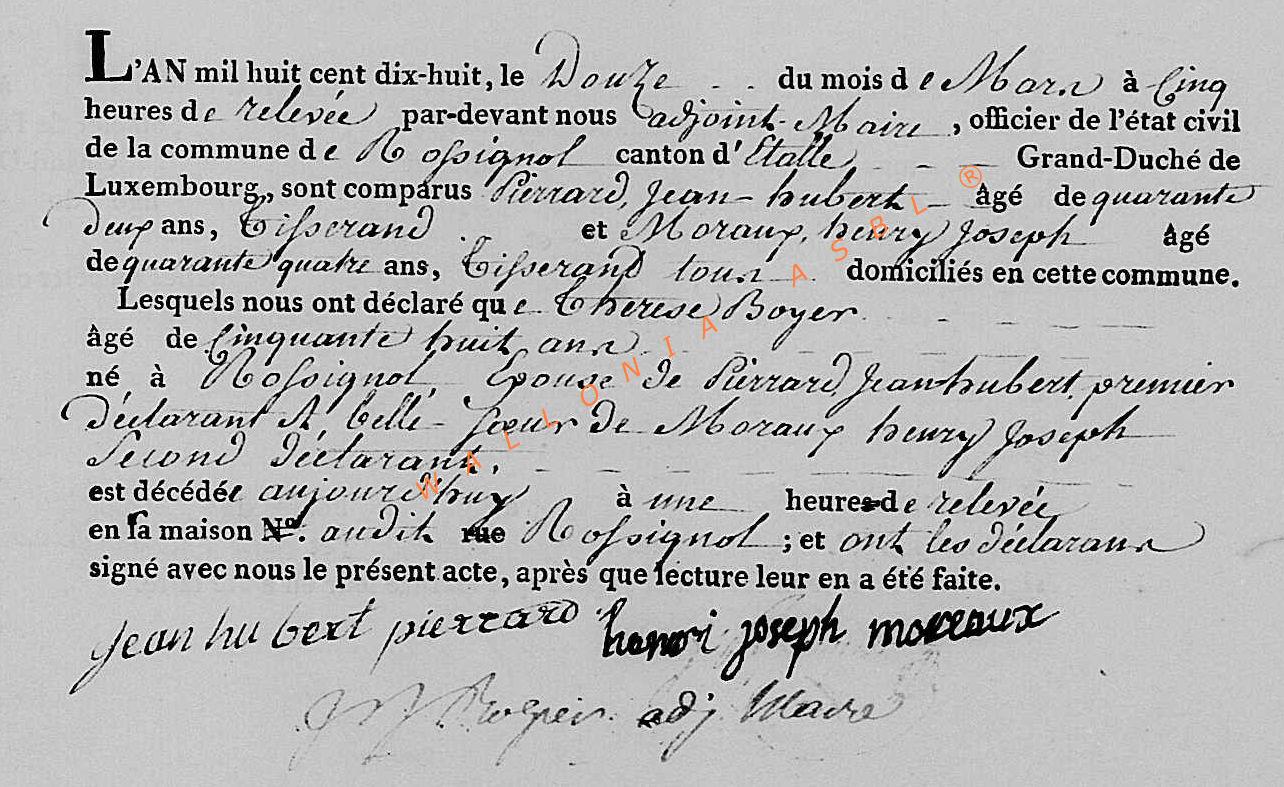 L'AN mil huit cent dix-huit, le Douze du mois de Mars à Cinq
heures de relevée par-devant nous adjoint-Maire, officier de l'état civil
de la commune de Rossignol canton d'Etalle Grand-Duché de
Luxembourg, sont comparus Pierrard, Jean-hubert âgé de quarante
deux ans, Tisserand et Moraux, henry Joseph âgé
de quarante quatre ans, Tisserand tous domiciliés en cette commune.
Lesquels nous ont déclaré que Therese Boyer
âgé de Cinquante huit ans
né à Rossignol Epouse de Pierrard, Jean-hubert, premier
déclarant et belle-soeur de Moraux henry Joseph
Second déclarant,
est décédée aujourd'huy à une heures de relevée
en sa maison Nº. audit rue Rossignol ; et ont les déclarans
signé avec nous le présent acte, après que lecture leur en a été faite.
jean hubert pierrard henori joseph moreaux
adj Maire
WALLONIA ASBL ®